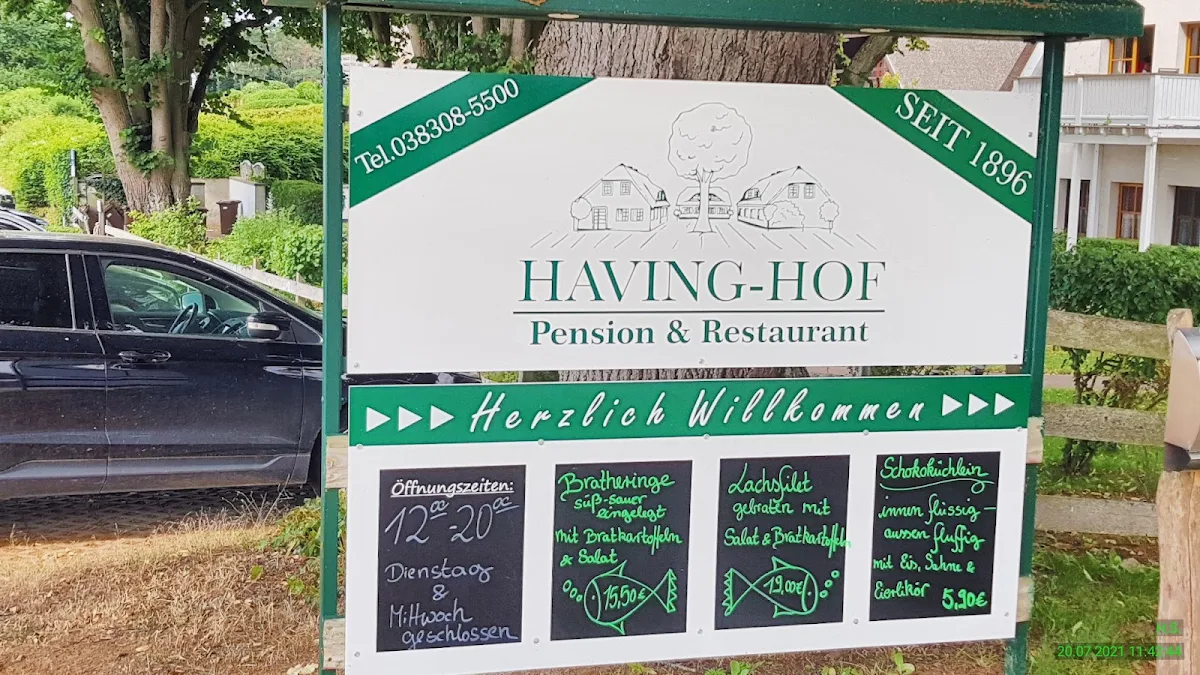 Tel.038308-5500
SEIT 1896
HAVING-HOF
Pension & Restaurant
Herzlich Willkommen
Öffnungszeiten:
12⁰⁰-20⁰⁰
Dienstag
&
Mittwoch
geschlossen
Bratheringe
süß-sauer
eingelegt
mit Bratkartoffeln
& Salat
15,50€
Lachsfilet
gebraten mit
Salat & Bratkartoffeln
19,00€
Schokoküchlein
innen flüssig -
aussen fluffig
mit Eis, Sahne &
Eierlikör
5,90€
20.07.2021 11:42:44